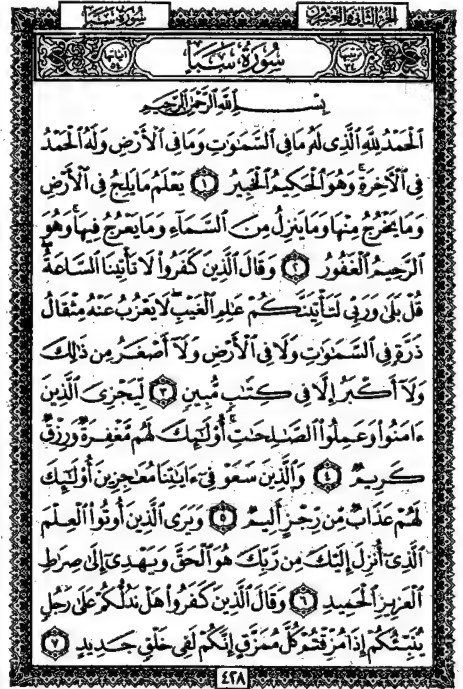 الجزء الثاني والعشرون
سورة سبأ
ترتيبها ٣٤
سُورَةُ سَبَإٍ
آياتها ٥٤
بِسْمِ اللَّهِ الرَّحْمَٰنِ الرَّحِيمِ
ٱلْحَمْدُ لِلَّهِ ٱلَّذِى لَهُۥ مَا فِى ٱلسَّمَٰوَٰتِ وَمَا فِى ٱلْأَرْضِ وَلَهُ ٱلْحَمْدُ
فِى ٱلْءَاخِرَةِ ۚ وَهُوَ ٱلْحَكِيمُ ٱلْخَبِيرُ ١ يَعْلَمُ مَا يَلِجُ فِى ٱلْأَرْضِ
وَمَا يَخْرُجُ مِنْهَا وَمَا يَنزِلُ مِنَ ٱلسَّمَآءِ وَمَا يَعْرُجُ فِيهَا ۚ وَهُوَ
ٱلرَّحِيمُ ٱلْغَفُورُ ٢ وَقَالَ ٱلَّذِينَ كَفَرُوا۟ لَا تَأْتِينَا ٱلسَّاعَةُ ۖ
قُلْ بَلَىٰ وَرَبِّى لَتَأْتِيَنَّكُمْ عَٰلِمِ ٱلْغَيْبِ ۖ لَا يَعْزُبُ عَنْهُ مِثْقَالُ
ذَرَّةٍ فِى ٱلسَّمَٰوَٰتِ وَلَا فِى ٱلْأَرْضِ وَلَآ أَصْغَرُ مِن ذَٰلِكَ
وَلَآ أَكْبَرُ إِلَّا فِى كِتَٰبٍ مُّبِينٍ ٣ لِّيَجْزِىَ ٱلَّذِينَ
ءَامَنُوا۟ وَعَمِلُوا۟ ٱلصَّٰلِحَٰتِ ۚ أُو۟لَٰٓئِكَ لَهُم مَّغْفِرَةٌ وَرِزْقٌ
كَرِيمٌ ٤ وَٱلَّذِينَ سَعَوْ فِىٓ ءَايَٰتِنَا مُعَٰجِزِينَ أُو۟لَٰٓئِكَ
لَهُمْ عَذَابٌ مِّن رِّجْزٍ أَلِيمٌ ٥ وَيَرَى ٱلَّذِينَ أُوتُوا۟ ٱلْعِلْمَ
ٱلَّذِىٓ أُنزِلَ إِلَيْكَ مِن رَّبِّكَ هُوَ ٱلْحَقَّ وَيَهْدِىٓ إِلَىٰ صِرَٰطِ
ٱلْعَزِيزِ ٱلْحَمِيدِ ٦ وَقَالَ ٱلَّذِينَ كَفَرُوا۟ هَلْ نَدُلُّكُمْ عَلَىٰ رَجُلٍ
يُنَبِّئُكُمْ إِذَا مُزِّقْتُمْ كُلَّ مُمَزَّقٍ إِنَّكُمْ لَفِى خَلْقٍ جَدِيدٍ ٧
٤٢٨